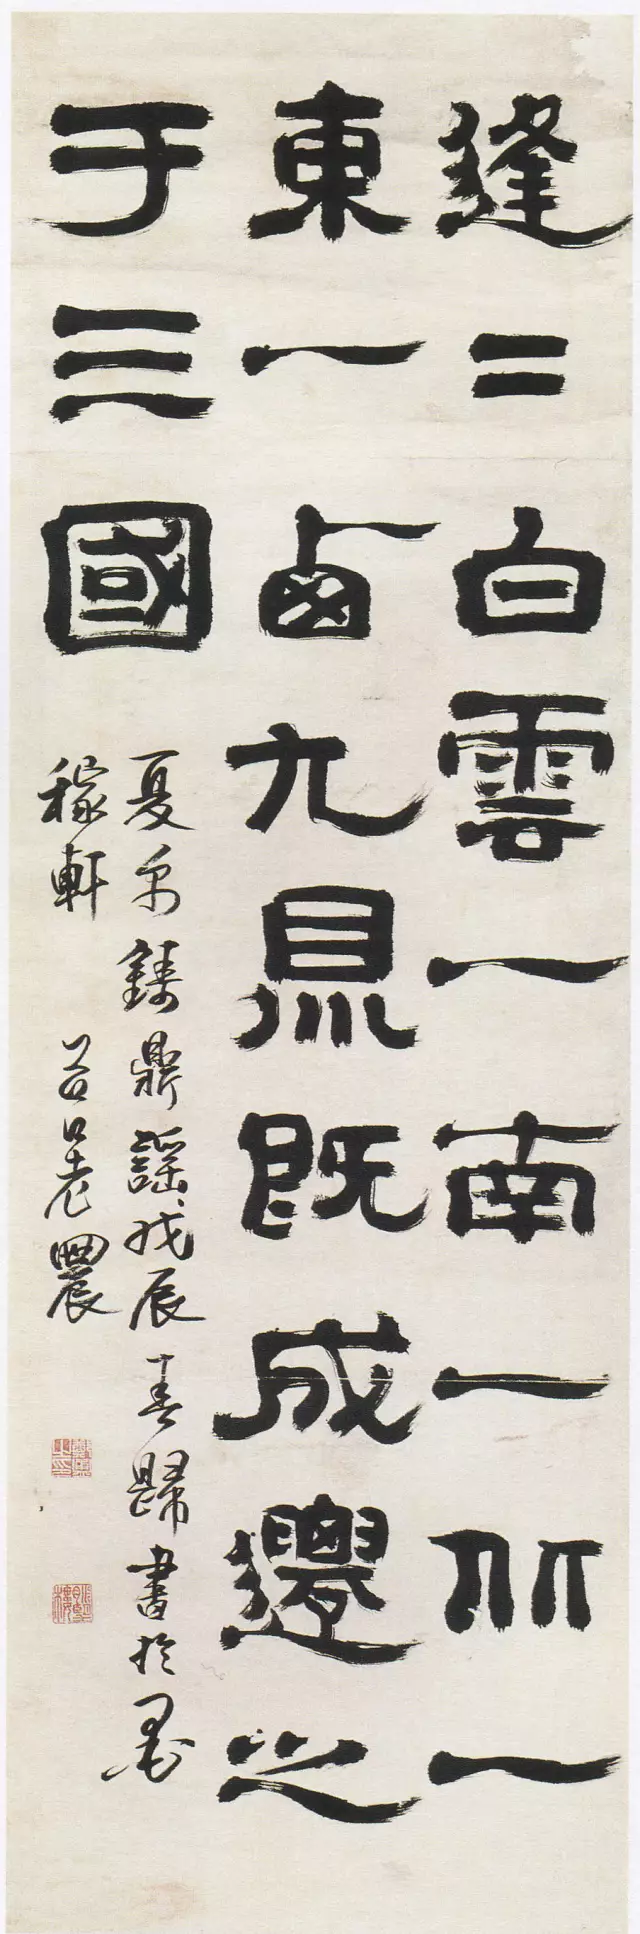 逢二白雲一南一北一
東一西九鼎既成遷之
于三國
夏禹鑄鼎謡戊辰春歸書於墨
稼軒 谷口老農